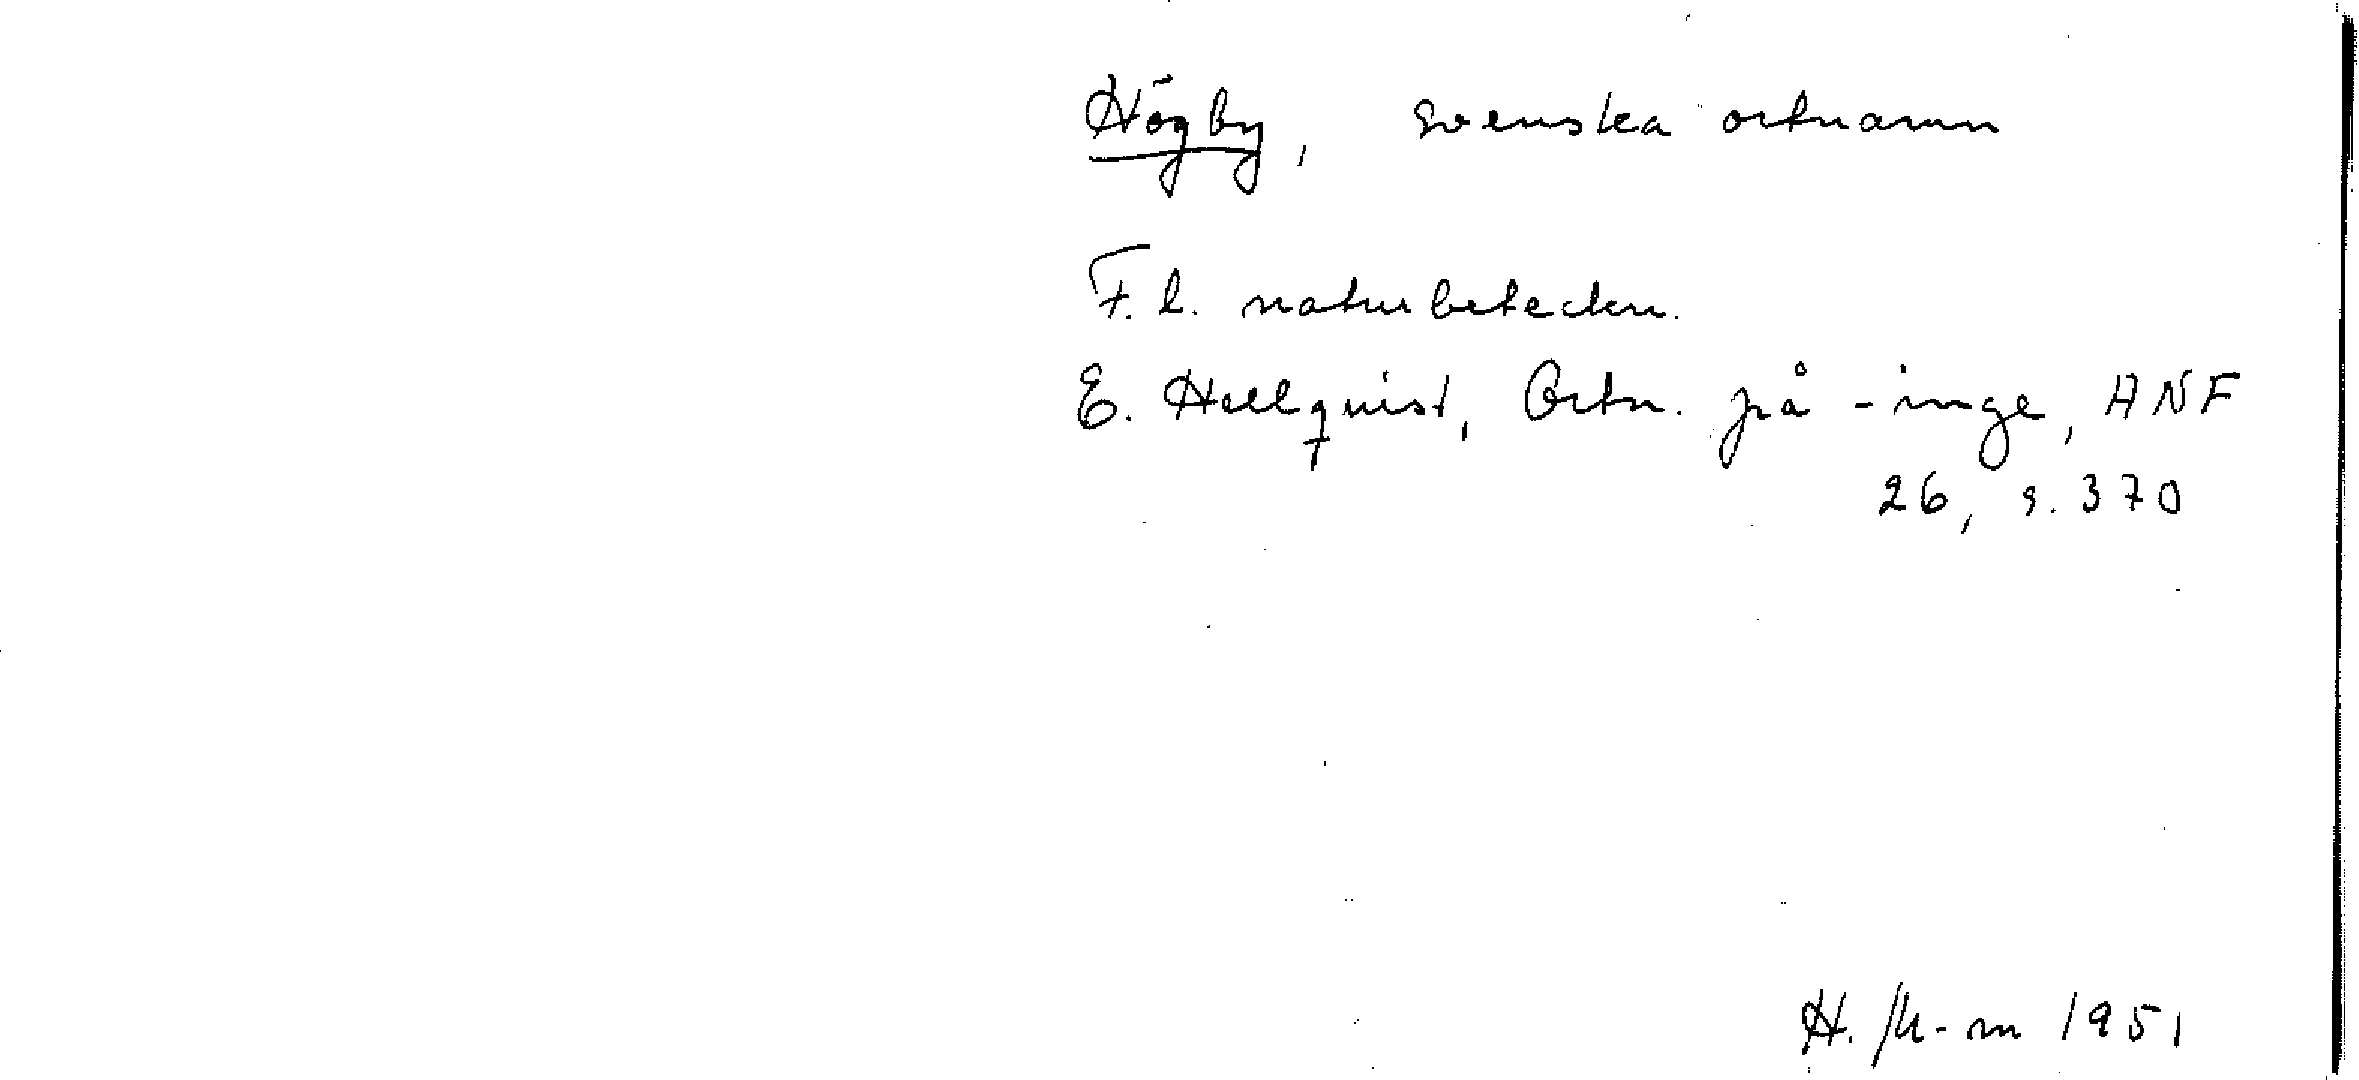 Högby, svenska ortnamn
F. l. naturbeteckn.
E. Hellquist, Ortn. på -inge, ANF
26, s. 370
H. M-m 1951